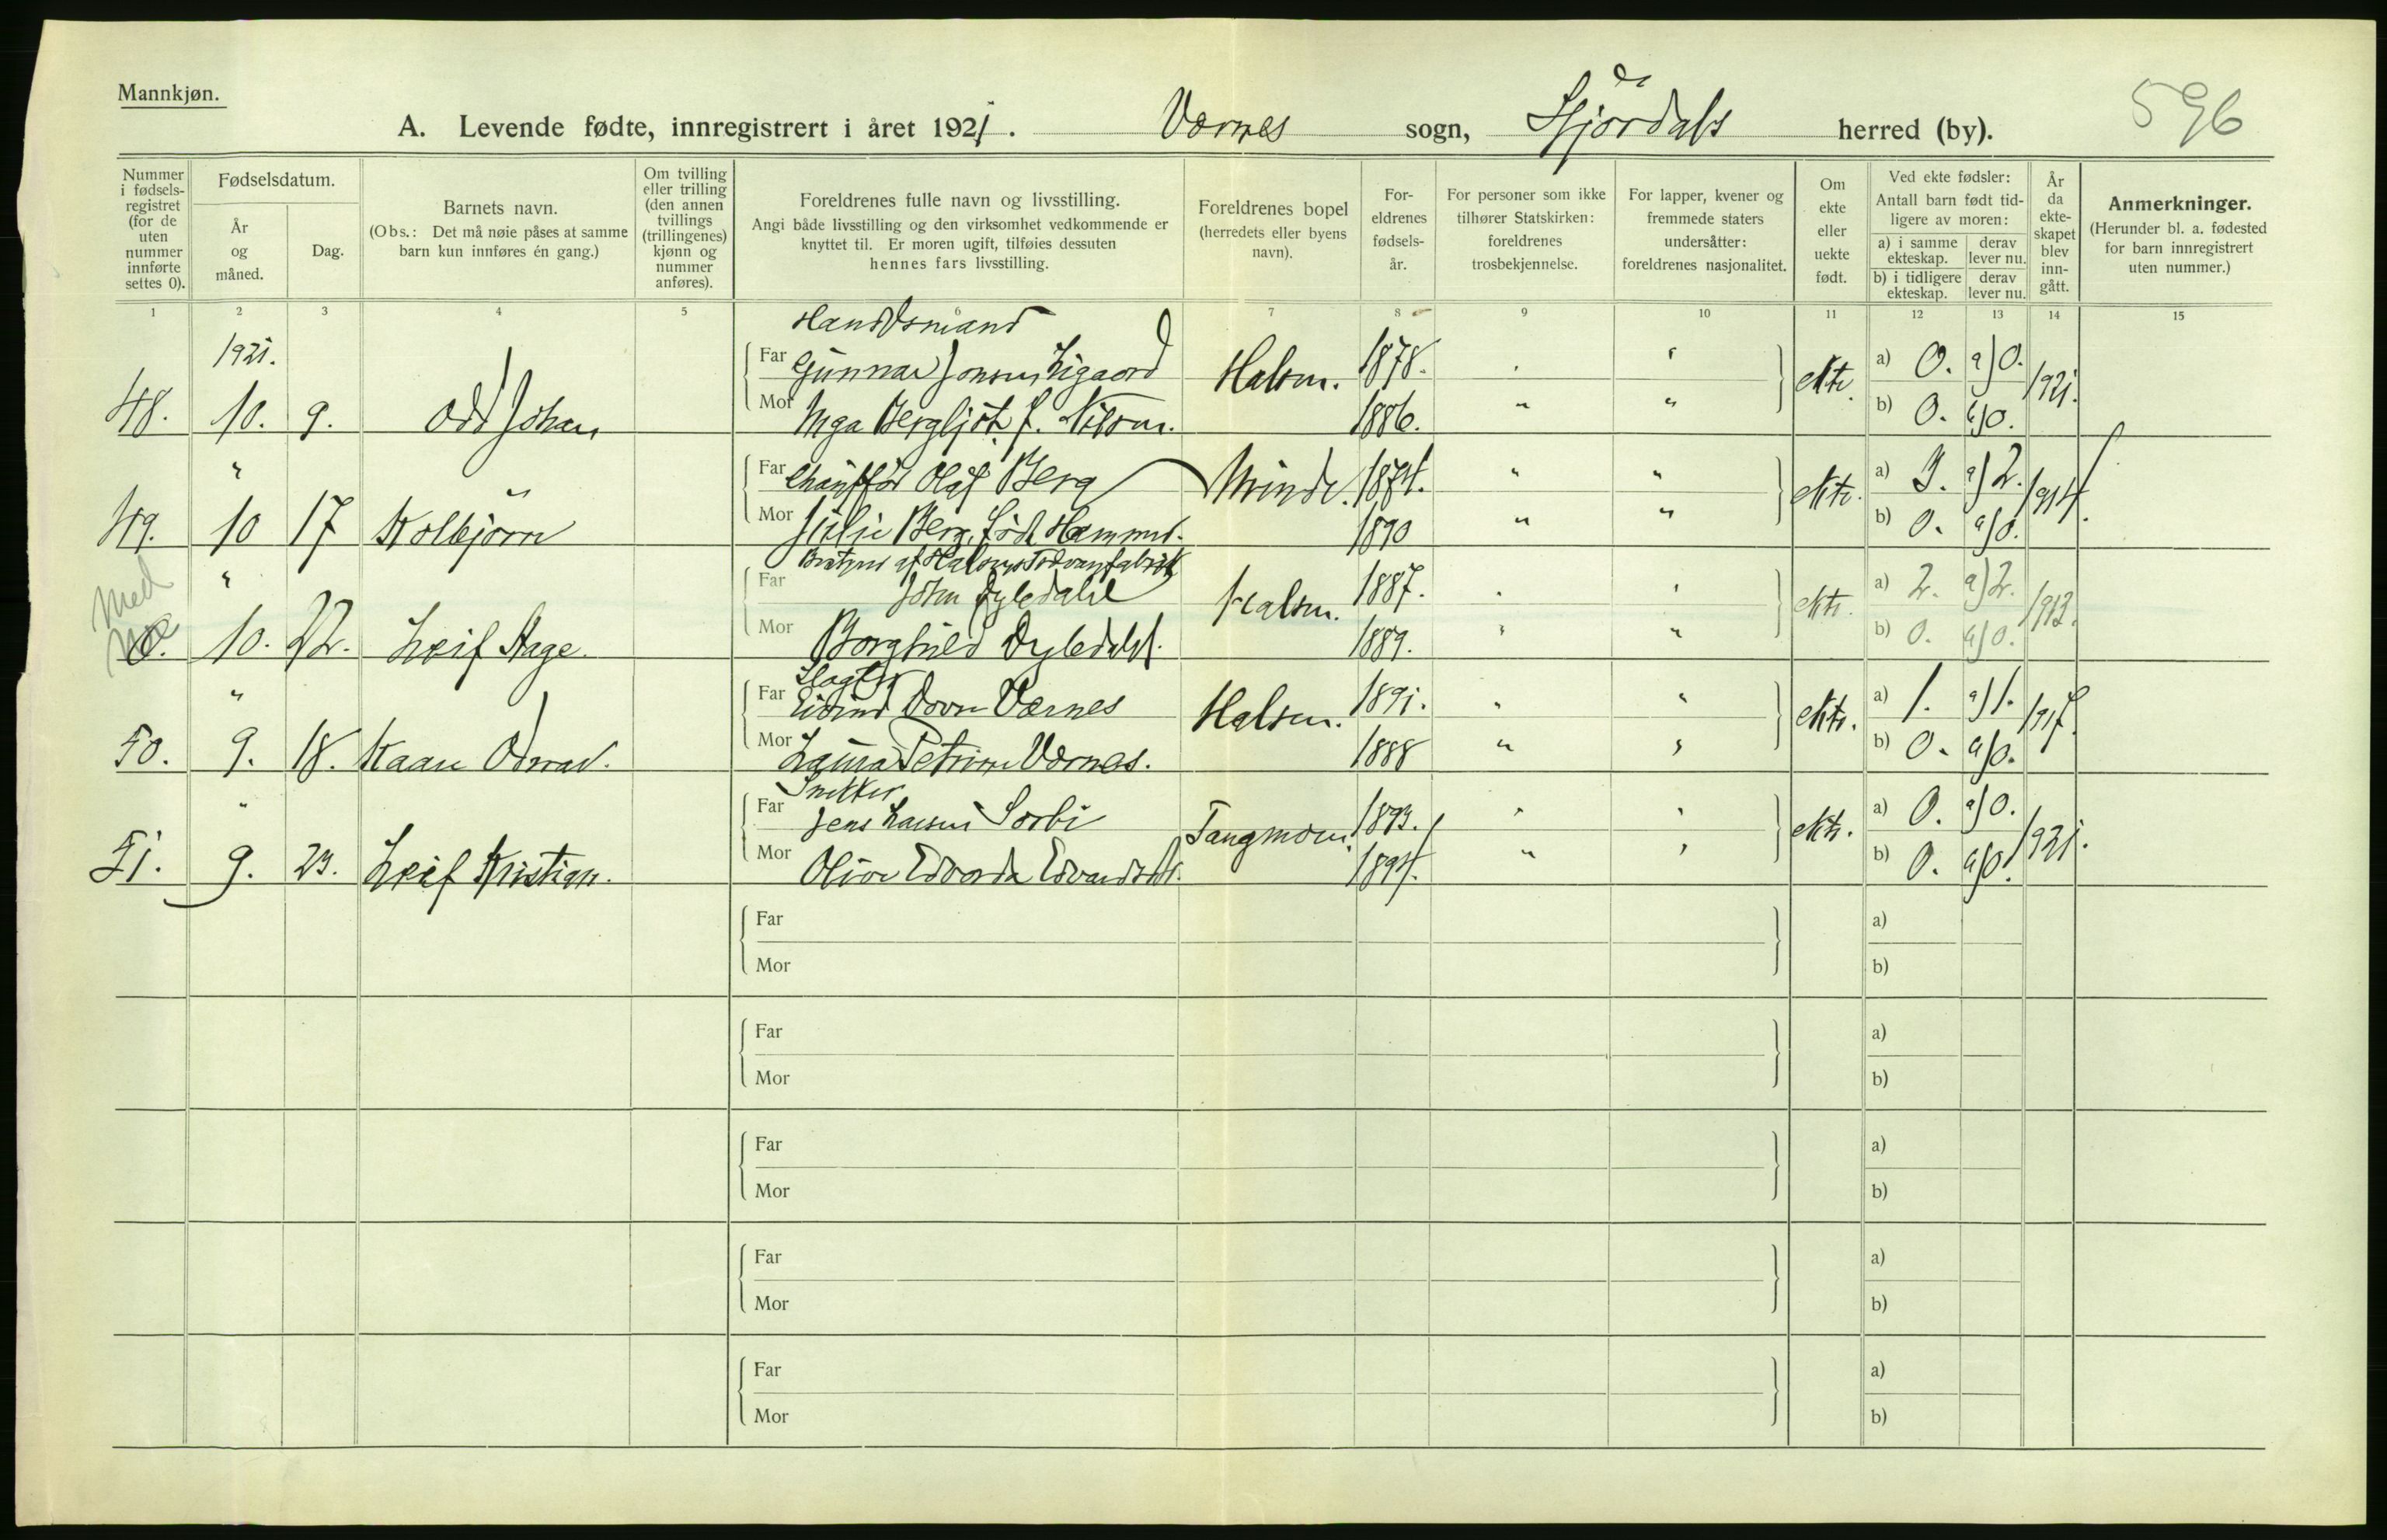 Mannkjøn.
A. Levende fødte, innregistrert i året 1921. Værnes sogn, Stjørdals herred (by). 596
Nummer i fødsels-registret (for de uten nummer innførte settes 0).
Fødselsdatum.
År og måned.
Dag.
Barnets navn.
(Obs.: Det må nøie påses at samme barn kun innføres én gang.)
Om tvilling eller trilling (den annen tvillings (trillingenes) kjønn og nummer anføres).
Foreldrenes fulle navn og livsstilling.
Angi både livsstilling og den virksomhet vedkommende er knyttet til. Er moren ugift, tilføies dessuten hennes fars livsstilling.
Foreldrenes bopel (herredets eller byens navn).
For-eldrenes fødsels-år.
For personer som ikke tilhører Statskirken: foreldrenes trosbekjennelse.
For lapper, kvener og fremmede staters undersåtter: foreldrenes nasjonalitet.
Om ekte eller uekte født.
Ved ekte fødsler: Antall barn født tid-ligere av moren:
a) i samme ekteskap. derav lever nu.
b) i tidligere ekteskap. derav lever nu.
År da ekte-skapet blev inn-gått.
Anmerkninger.
(Herunder bl. a. fødested for barn innregistrert uten nummer.)
1 2 3 4 5 6 7 8 9 10 11 12 13 14 15
1921. Handelsmand
Far Gunnar Jonsen Ligaard Halsen. 1878. " ekte. a) 0. a) 0. 1921.
48. 10. 9. Odd Johan Mor Inga Bergljot f. Nilsen. 1886. " " b) 0. b) 0.
" Far Chauffør Olaf Berg 1874. " " ekte. a) 3. a) 2. 1914.
49. 10 17 Kolbjørn Mor Julie Berg, født Hammer. 1890 " " b) 0. b) 0.
med
" Far John Dyledahl Halsen. 1887. " " ekte. a) 2. a) 2. 1913.
0. 10. 22. Leif Aage. Mor Borghild Dyledahl. 1889. " " b) 0. b) 0.
Slagter
" Far Eivind Dovre Værnes Halsen. 1891. " " ekte. a) 1. a) 1. 1917.
50. 9. 18. Kaare Mor Laura Petrine Værnes. 1888 " " b) 0. b) 0.
Snekker
" Far Jens Larsen Sorbi Tangmoen. 1893. " " ekte. a) 0. a) 0. 1921.
51. 9. 23. Leif Kristian. Mor 1894. " " b) 0. b) 0.
Far a)
Mor b)
Far a)
Mor b)
Far a)
Mor b)
Far a)
Mor b)
Far a)
Mor b)